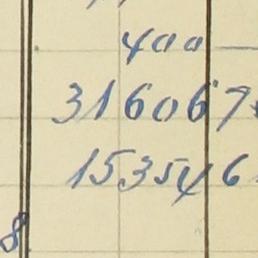 400
316067
153546
8